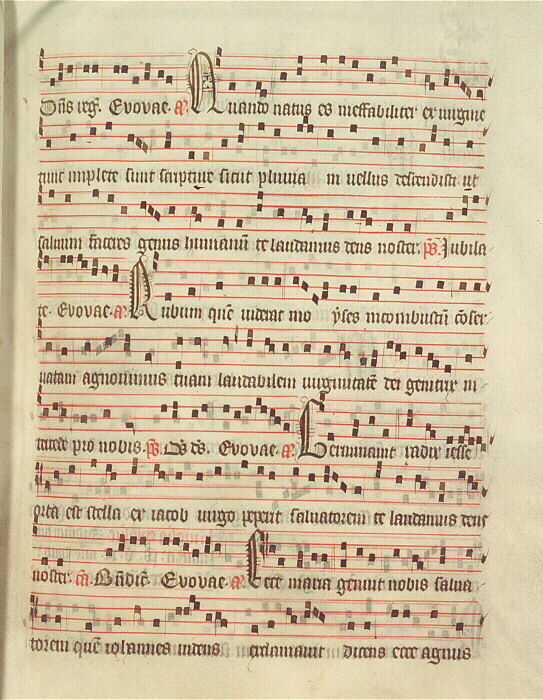 Dñs reg̃. Evovae. a. Quando natus es ineffabiliter ex uirgine
tunc implete sunt scripture sicut pluuia in uellus descendisti ut
saluum faceres genus humanũ te laudamus deus noster. ps. Jubila
te. Evovae. a. Rubum quẽ uiderat moyses incombustũ cõser
uatam agnouimus tuam laudabilem uirginitatẽ dei genitrix in
tercede pro nobis. ps. Ds ds. Evovae. a. Germinauit radix iesse
orta est stella ex iacob uirgo peperit saluatorem te laudamus deus
noster. Bñdic̃. Evovae. a. Ecce maria genuit nobis salua
torem quẽ iohannes uidens exclamauit dicens ecce agnus